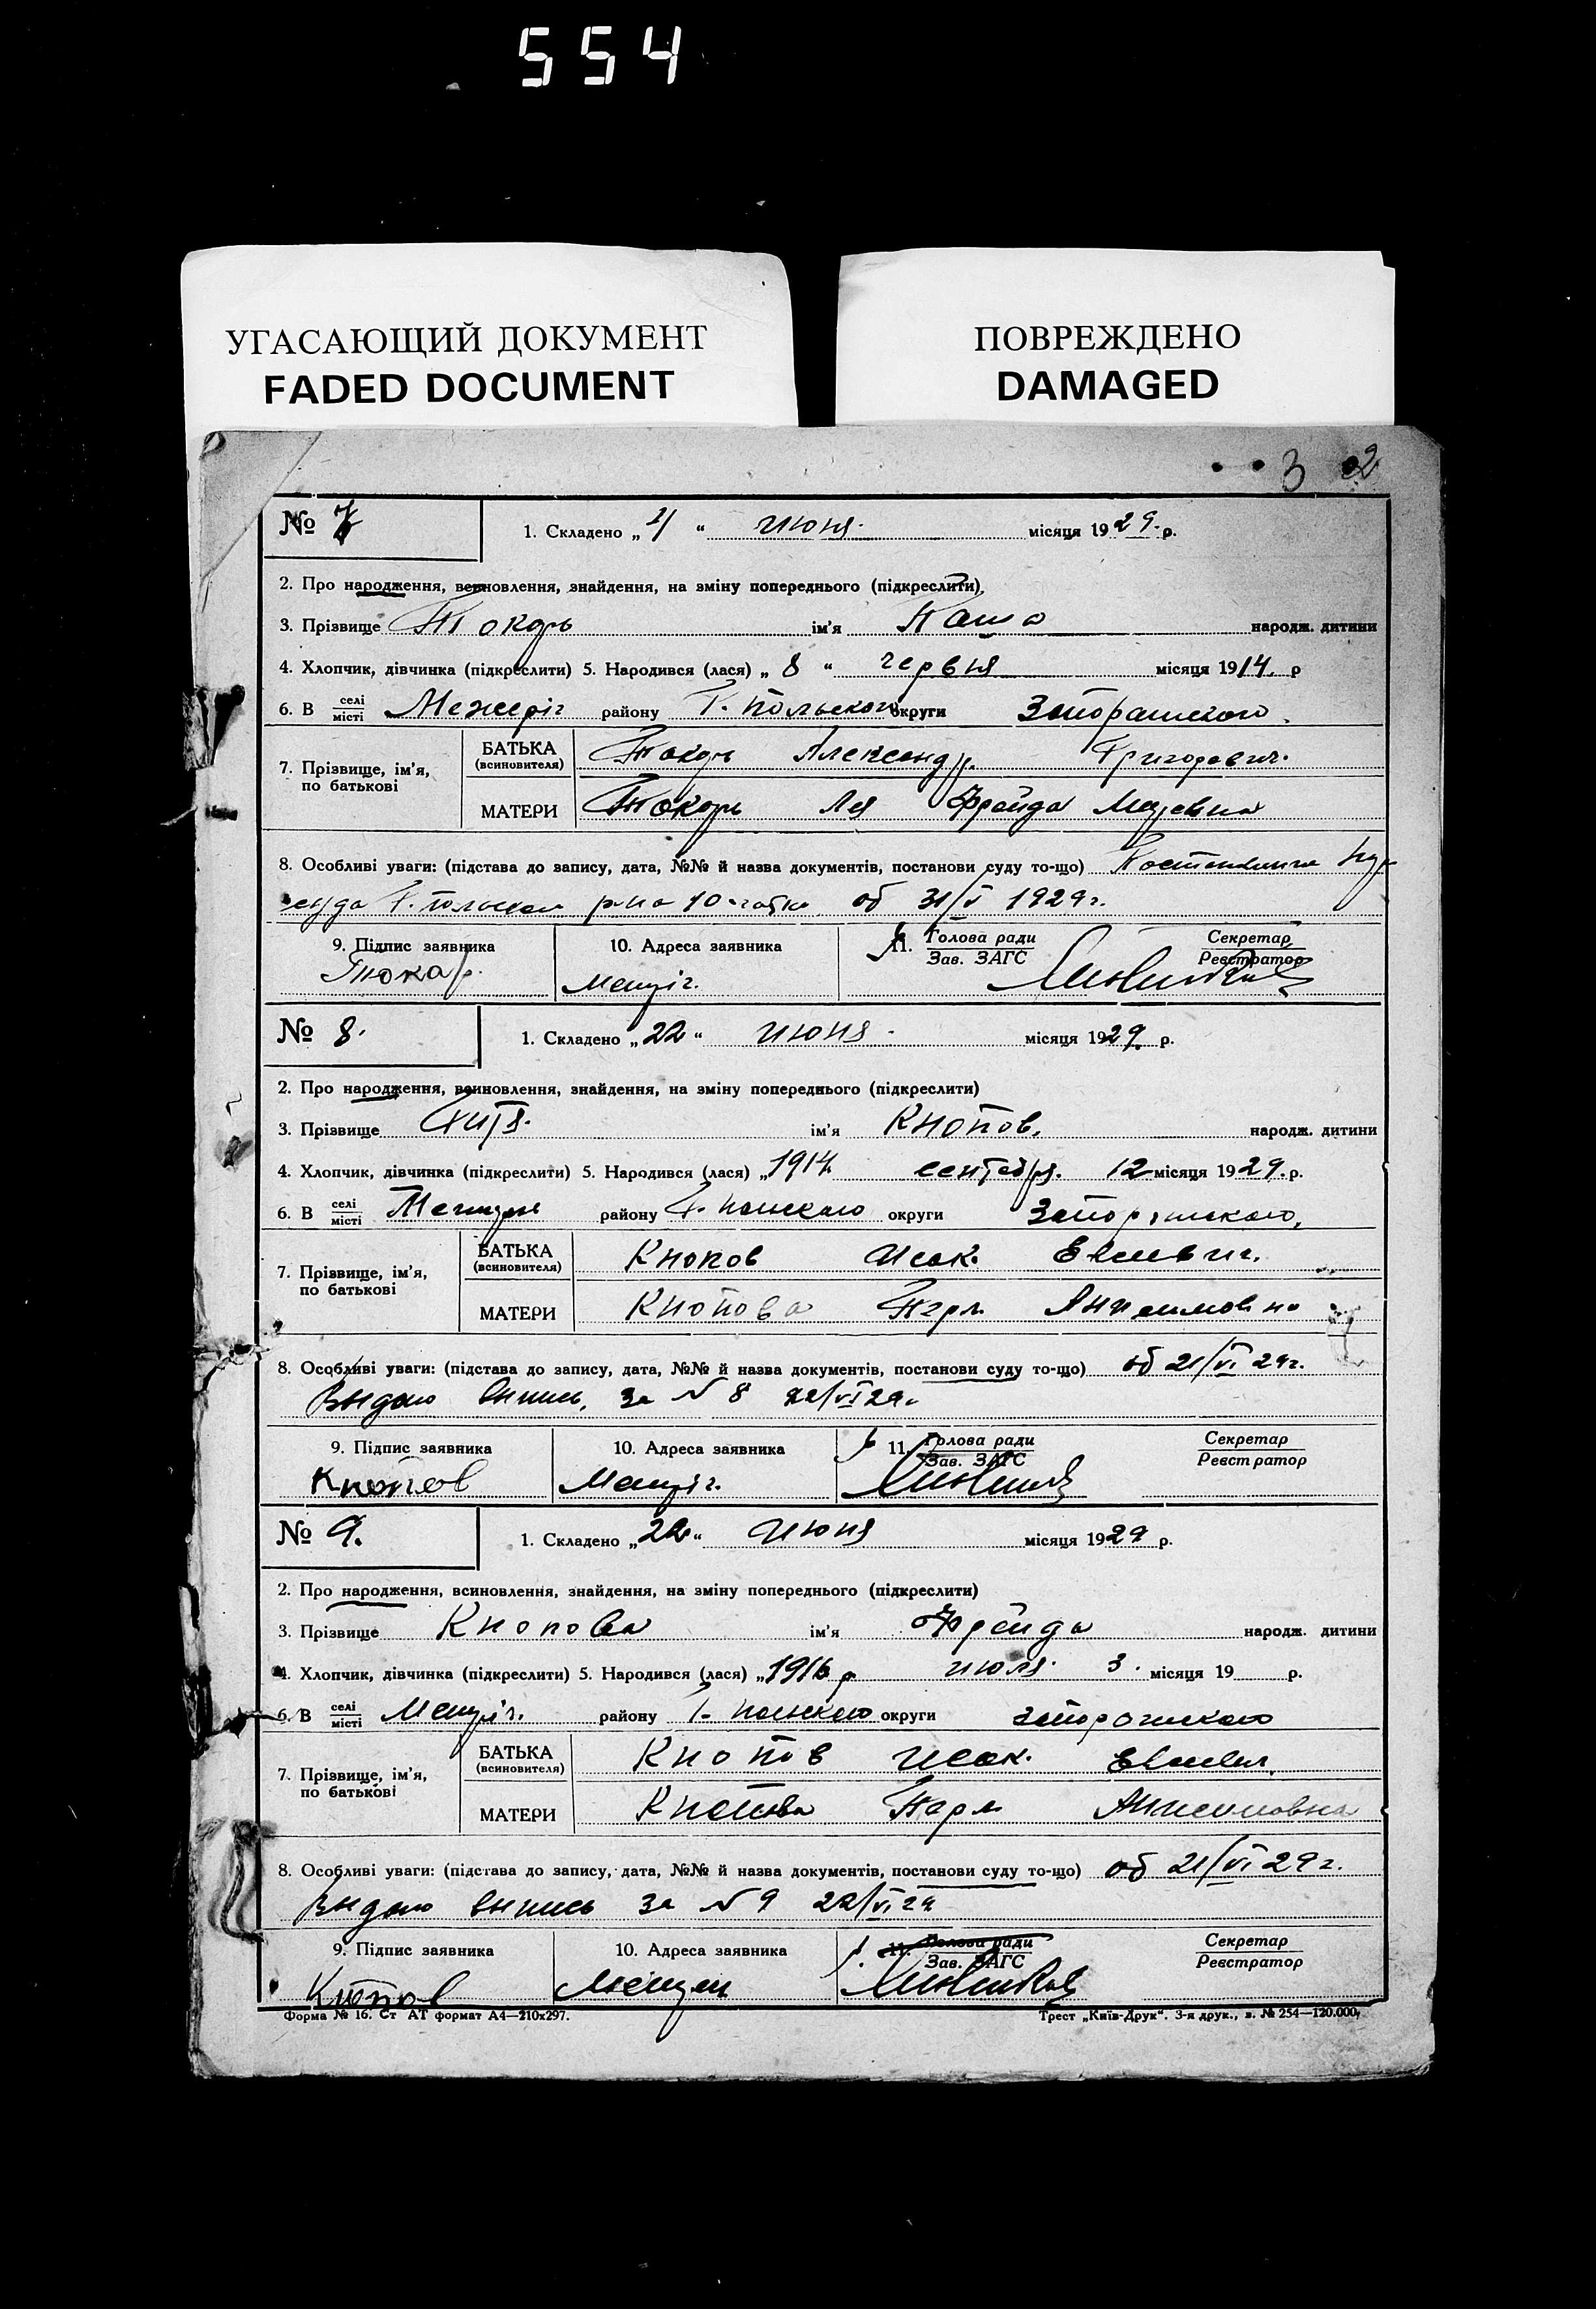 554
УГАСАЮЩИЙ ДОКУМЕНТ
FADED DOCUMENT
ПОВРЕЖДЕНО
DAMAGED
3 2
№ 7 1. Складено „ “ июня. місяця 1929. р.
2. Про народження, всиновлення, знайдення, на зміну попереднього (підкреслити)
3. Прізвище Токарь ім'я народж. дитини
4. Хлопчик, дівчинка (підкреслити) 5. Народився (лася) „ 8 “ червня місяця 1914. р
6. В селі місті Межеріг району Г. Польского округи Запорашского.
7. Прізвище, ім'я, по батькові
БАТЬКА (всиновителя) Токарь Александр Григоревич.
МАТЕРИ Токарь Лея Фрейда
8. Особливі уваги: (підстава до запису, дата, №№ й назва документів, постанови суду то-що)
суда Г. польском р-на 10-го об 31/V 1929г.
9. Підпис заявника 10. Адреса заявника 11. Голова ради Зав. ЗАГС Секретар Реєстратор
Токар.
№ 8. 1. Складено „22“ июня. місяця 1929. р.
2. Про народження, всиновлення, знайдення, на зміну попереднього (підкреслити)
3. Прізвище ім'я Кнопов. народж. дитини
4. Хлопчик, дівчинка (підкреслити) 5. Народився (лася) „1914 сентября. 12 місяця 1929. р.
6. В селі місті району Г. польского округи
7. Прізвище, ім'я, по батькові
БАТЬКА (всиновителя) Кнопов Исак.
МАТЕРИ Кнопова Перл Анисимовна
8. Особливі уваги: (підстава до запису, дата, №№ й назва документів, постанови суду то-що) об 21/VI 29г.
Выдаю выпись. за N 8 22/VI 29.
9. Підпис заявника 10. Адреса заявника 11. Голова ради Зав. ЗАГС Секретар Реєстратор
Кнопов
№ 9. 1. Складено „22“ июня місяця 1929 р.
2. Про народження, всиновлення, знайдення, на зміну попереднього (підкреслити)
3. Прізвище Кнопова ім'я Фрейда народж. дитини
4. Хлопчик, дівчинка (підкреслити) 5. Народився (лася) „1916 р июля 3. місяця 19 р.
6. В селі місті району Г. польского округи
7. Прізвище, ім'я, по батькові
БАТЬКА (всиновителя) Кнопов Исак.
МАТЕРИ Кнопова Перл Анисимовна
8. Особливі уваги: (підстава до запису, дата, №№ й назва документів, постанови суду то-що) об 21/VI 29г.
Выдаю выпись за N 9 22/VI 29
9. Підпис заявника 10. Адреса заявника 11. Голова ради Зав. ЗАГС Секретар Реєстратор
Кнопов
Форма № 16. Ст АТ формат А4—210х297. Трест „Київ-Друк“. 3-я друк., з. № 254—120.000.